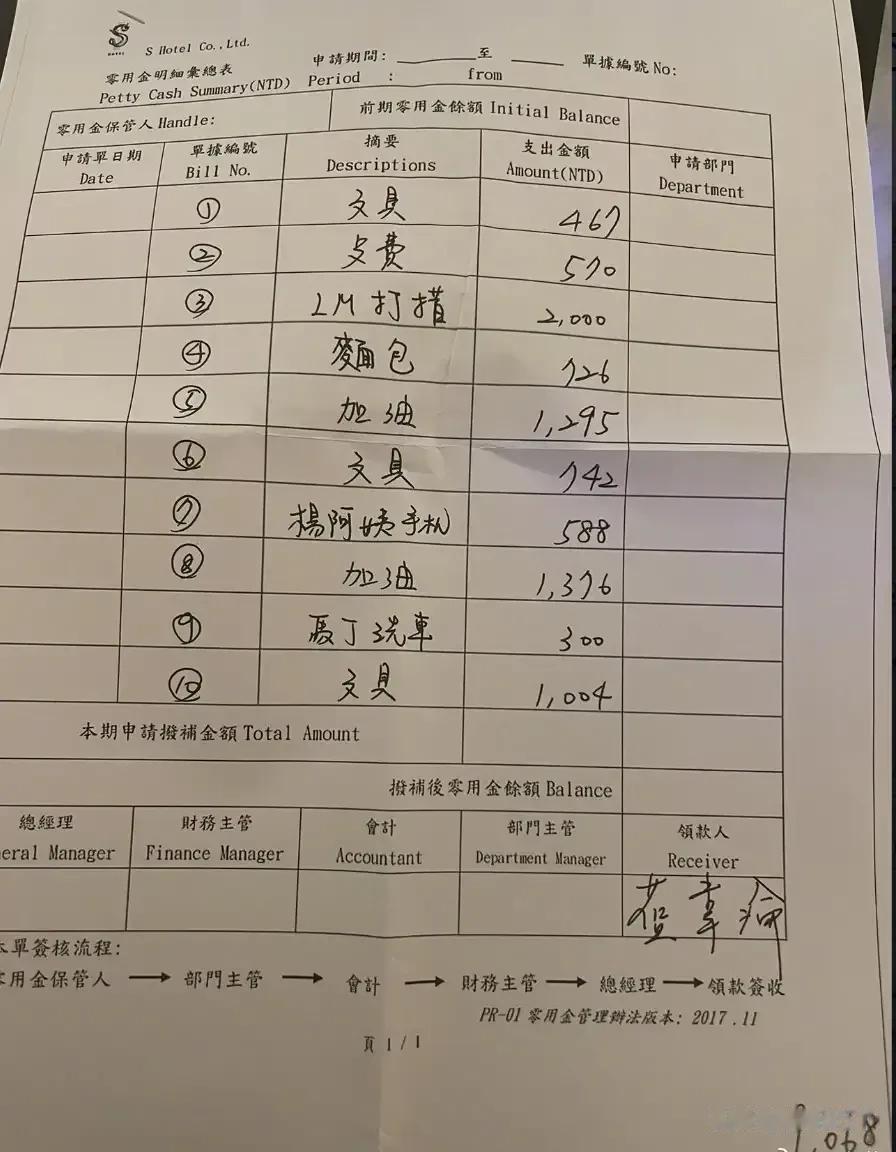 S
HOTEL
S Hotel Co.,Ltd.
零用金明細彙總表
Petty Cash Summary(NTD)
申請期間: ______至 ______
Period : from
單據編號No:
零用金保管人Handle:
前期零用金餘額 Initial Balance
申請單日期 Date
單據編號 Bill No.
摘要 Descriptions
支出金額 Amount(NTD)
申請部門 Department
① 文具 467
② 570
③ LM 打掃 2,000
④ 麵包 726
⑤ 加油 1,295
⑥ 文具 742
⑦ 楊阿姨手机 588
⑧ 加油 1,376
⑨ 馬丁洗車 300
⑩ 文具 1,004
本期申請撥補金額 Total Amount
撥補後零用金餘額 Balance
總經理 eral Manager
財務主管 Finance Manager
會計 Accountant
部門主管 Department Manager
領款人 Receiver
本單簽核流程:
零用金保管人 → 部門主管 → 會計 → 財務主管 → 總經理 → 領款簽收
PR-01 零用金管理辦法版本: 2017.11
頁 1/1
9,068